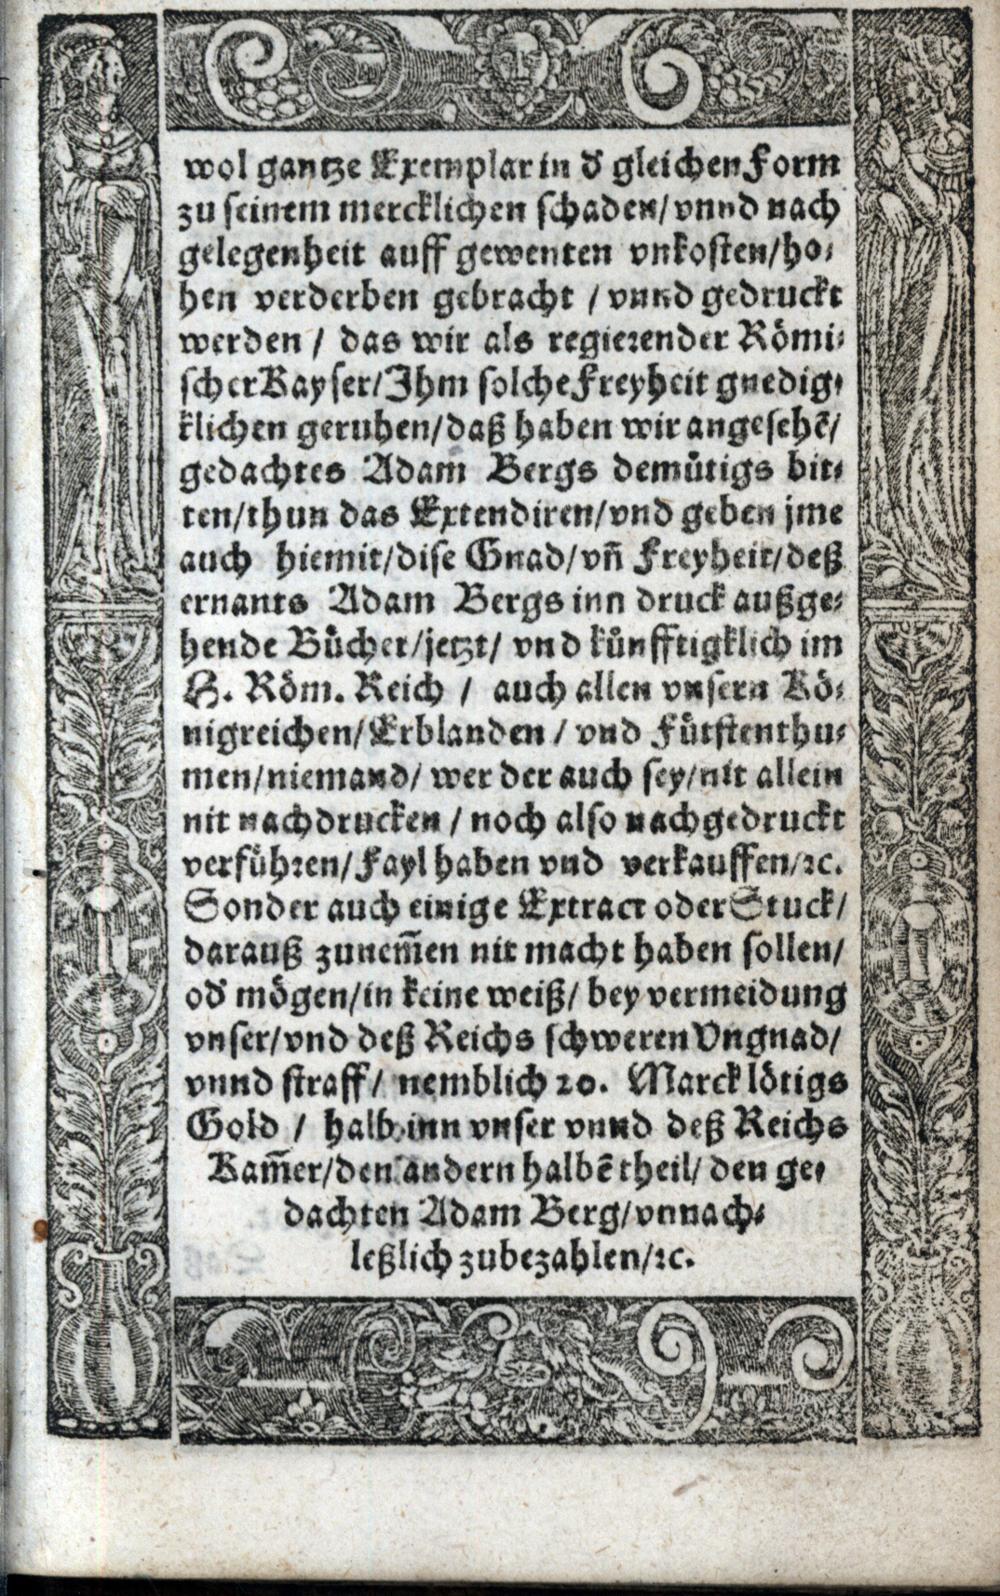 wol gantze Exemplar in d̕ gleichen Form
zu seinem mercklichen schaden/ vnnd nach
gelegenheit auff gewenten vnkosten/ho⸗
hen verderben gebracht / vnnd gedruckt
werden / das wir als regierender Römi⸗
scher Kayser/Ihm solche Freyheit gnedig⸗
klichen geruhen/daß haben wir angesehẽ/
gedachtes Adam Bergs demütigs bit⸗
ten/thun das Extendiren/vnd geben jme
auch hiemit/dise Gnad/vñ Freyheit/deß
ernants Adam Bergs inn druck außge⸗
hende Bücher/jetzt/ vnd künfftigklich im
H. Röm. Reich / auch allen vnsern Kö⸗
nigreichen/Erblanden / vnd Fürstenthu⸗
men/niemand/ wer der auch sey/nit allein
nit nachdrucken / noch also nachgedruckt
verführen/Fayl haben vnd verkauffen/ꝛc.
Sonder auch einige Extract oder Stuck/
darauß zunem̃en nit macht haben sollen/
od̕ mögen/in keine weiß/ bey vermeidung
vnser/vnd deß Reichs schweren Vngnad/
vnnd straff/ nemblich 20. Marck lötigs
Gold / halb inn vnser vnnd deß Reichs
Kam̃er/den andern halbẽ theil/ den ge⸗
dachten Adam Berg/vnnach⸗
leßlich zubezahlen/ꝛc.